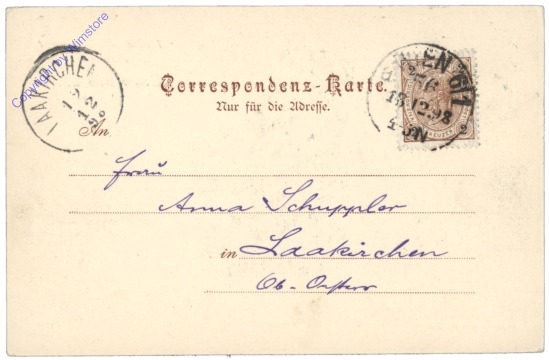 Copyright by Wimstore
LAAKIRCHEN
12
WIEN 6/1
15.12.98
Correspondenz-Karte.
Nur für die Adresse.
An
Frau
Anna Schuppler
in Laakirchen
Ob.-Oesterr